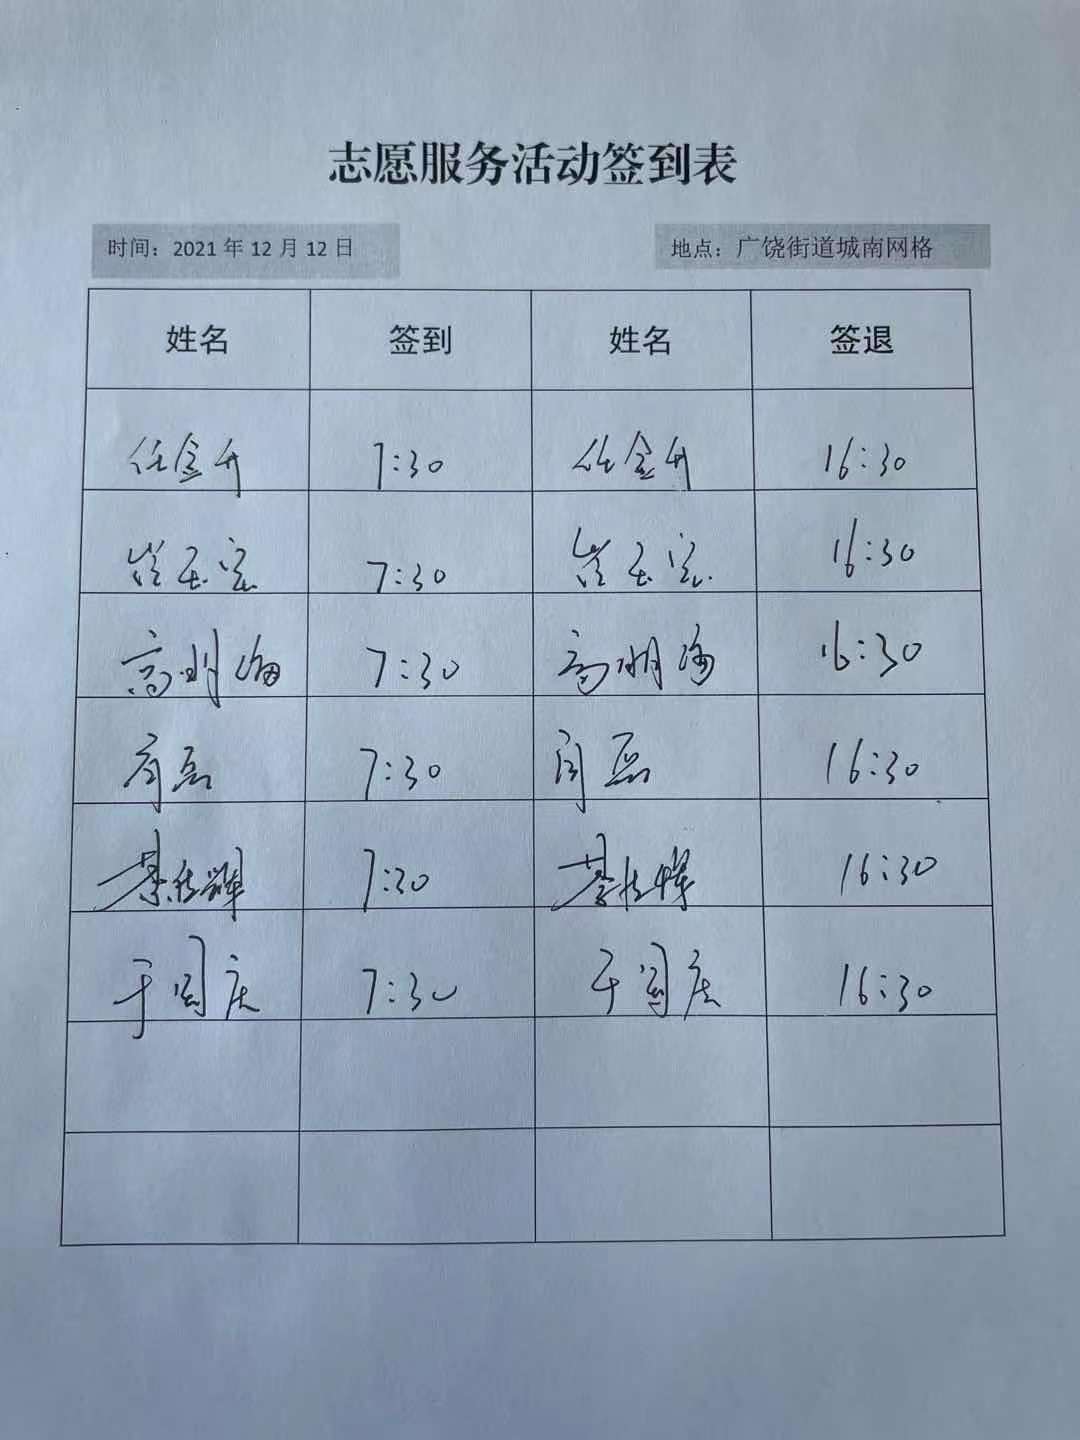 志愿服务活动签到表
时间：2021年12月12日 地点：广饶街道城南网格
姓名 签到 姓名 签退
任金升 7:30 任金升 16:30
7:30 16:30
高明海 7:30 高明海 16:30
闫磊 7:30 闫磊 16:30
7:30 16:30
于国庆 7:30 于国庆 16:30